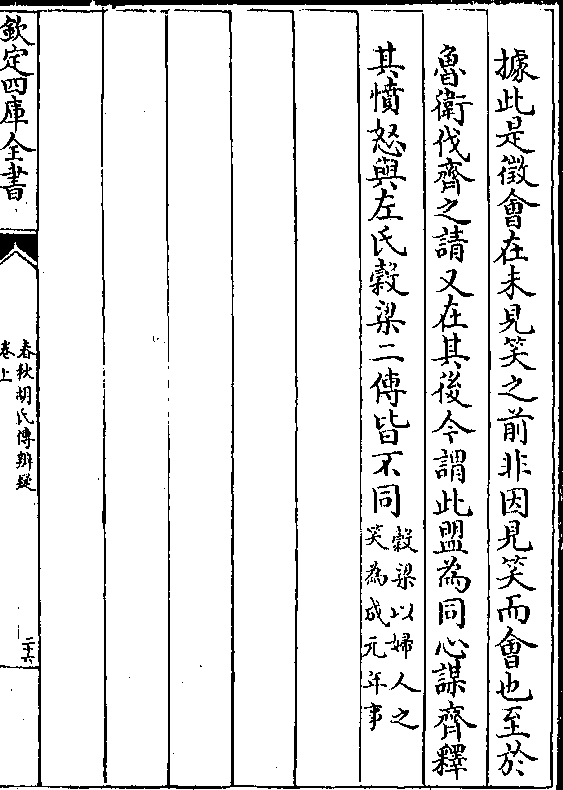 據此是徵會在未見笑之前非因見笑而會也至於
魯衛伐齊之請又在其後今謂此盟為同心謀齊釋
其憤怒與左氏穀梁二傳皆不同
穀梁以婦人之
笑為成元年事
欽定四庫全書
春秋胡氏傳辨疑
卷上
二十六